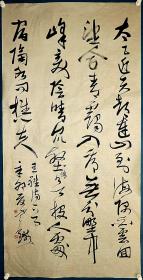 太乙近天都連山到海隅白雲回
望合青靄入看無分野中
峰變陰晴众壑殊欲投人處
宿隔水问樵夫
王維